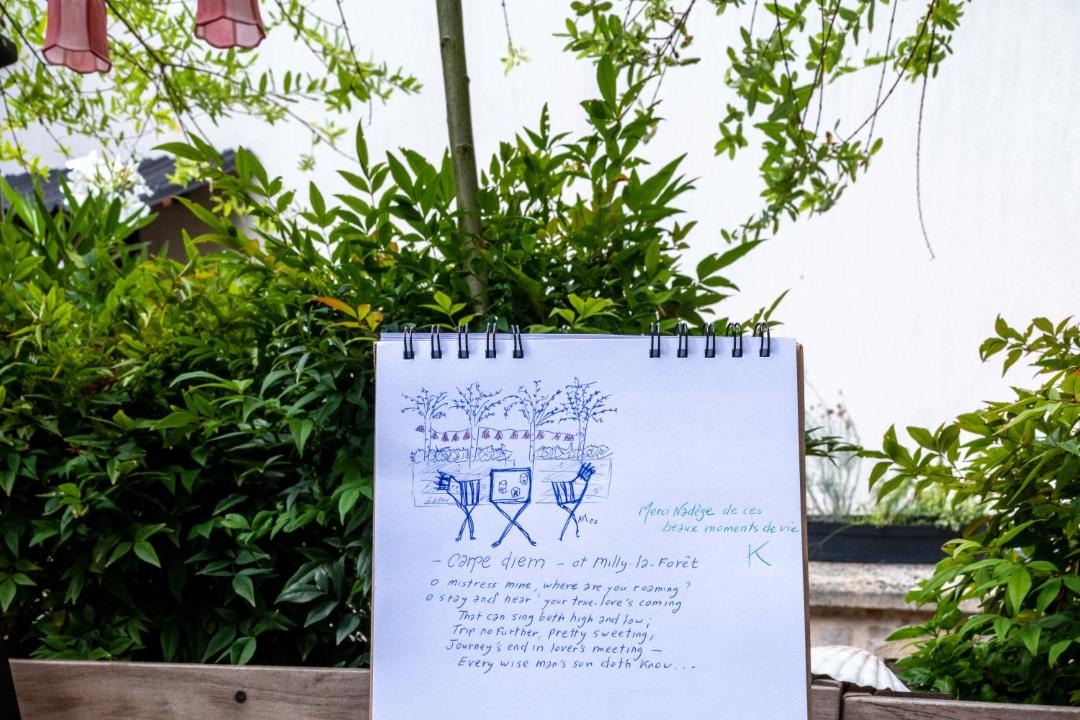 Merci Nadège de ces
beaux moments de vie
K
- Carpe diem - at Milly-la-Forêt
O mistress mine, where are you roaming?
O stay and hear, your true-love's coming
That can sing both high and low;
Trip no further, pretty sweeting,
Journey's end in lover's meeting —
Every wise man's son doth know...